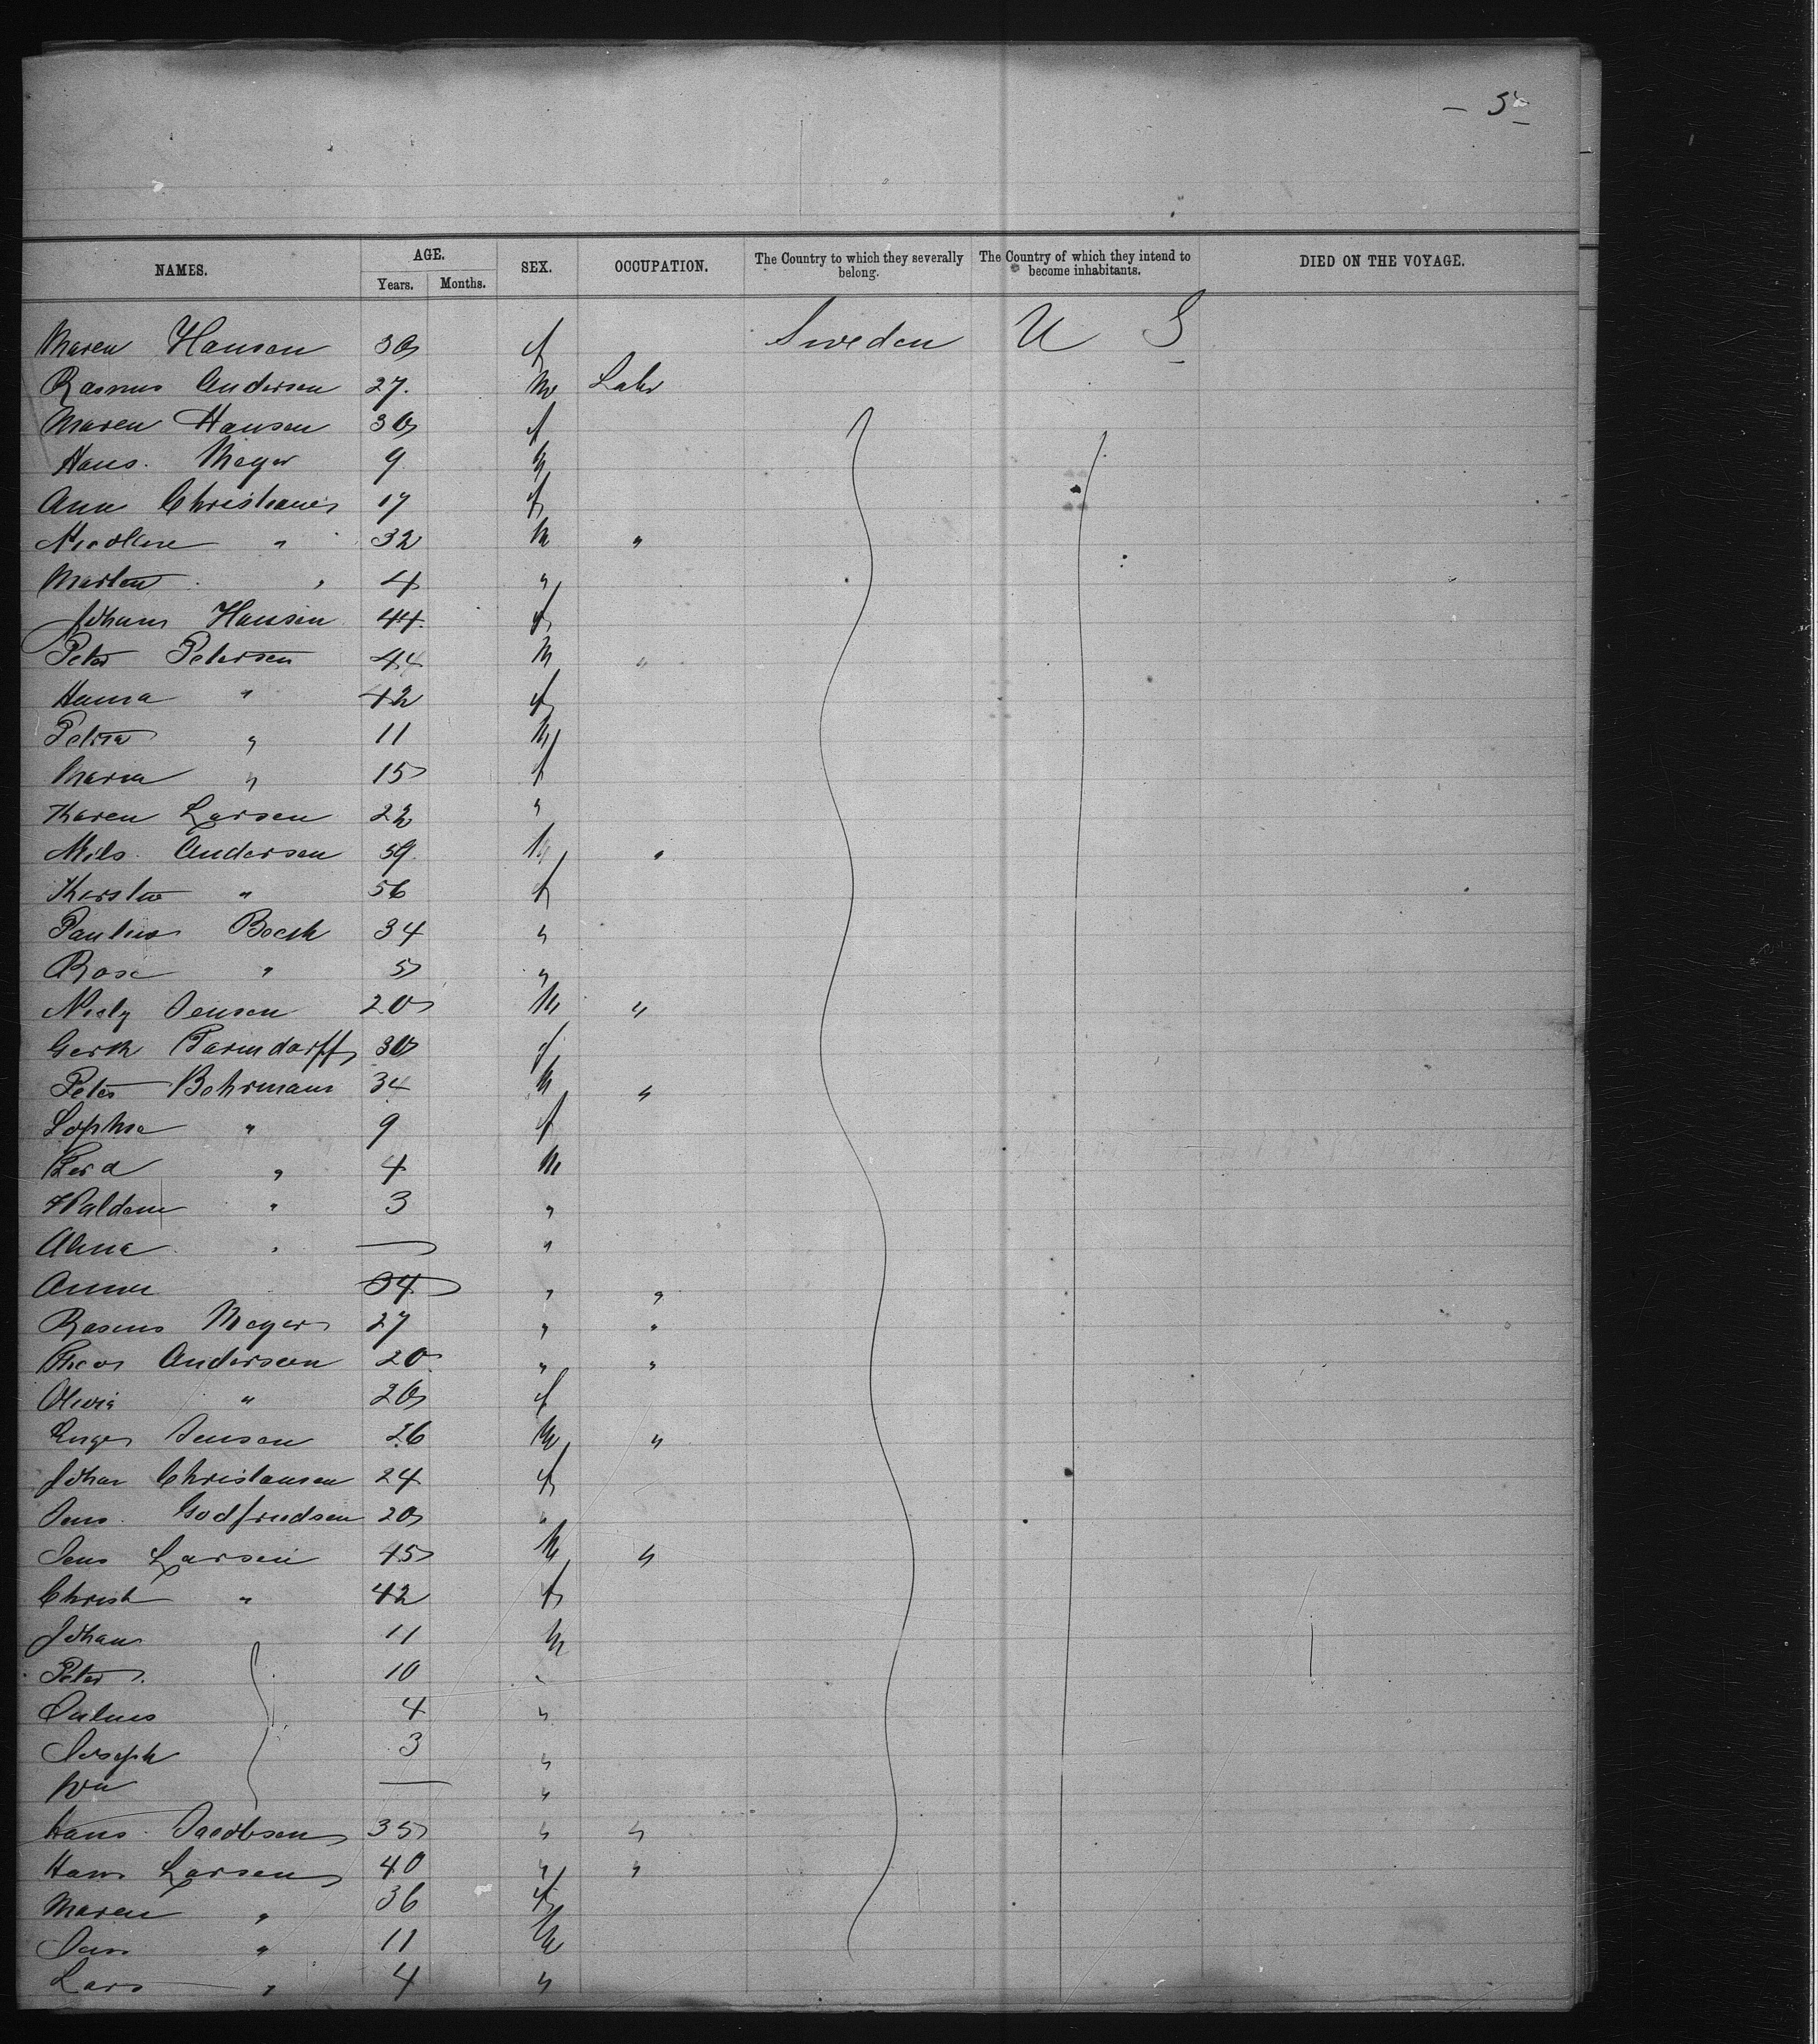 - 5 -
NAMES. AGE. Years. Months. SEX. OCCUPATION. The Country to which they severally belong. The Country of which they intend to become inhabitants. DIED ON THE VOYAGE.
Maren Hansen 30 f Sweden U S
Rasmus Andersen 27. M Labr
Maren Hansen 30 f
Hans. Meyer 9 M
Ann 17 f
" 32 M "
" 4 "
Johann Hansen 44 f
Peter Petersen 44 M "
Hanna " 42 f
" 11 M
Maria " 15 f
Karen Larsen 22 "
Nils. Andersen 59 M "
" 56 f
34 "
Rose " 5 "
Jensen 20 M "
30 f
Peter Bohrmann 34 M "
Sophia " 9 f
Ferd " 4 M
" 3 "
" — "
34 " "
Rasmus Meyer 27 " "
Andersen 20 " "
Olivia " 20 f
Jensen 26 M "
Johan Christansen 24 f
Jens. Godfredsen 20 "
Jens Larsen 45 M "
Christ " 42 f
Johan 11 M
Peter 10 "
Julius 4 "
Joseph 3 "
Wm — "
Hans. Jacobsen 35 " "
Hans Larsen 40 " "
Maren " 36 f
" 11 M
Lars " 4 "